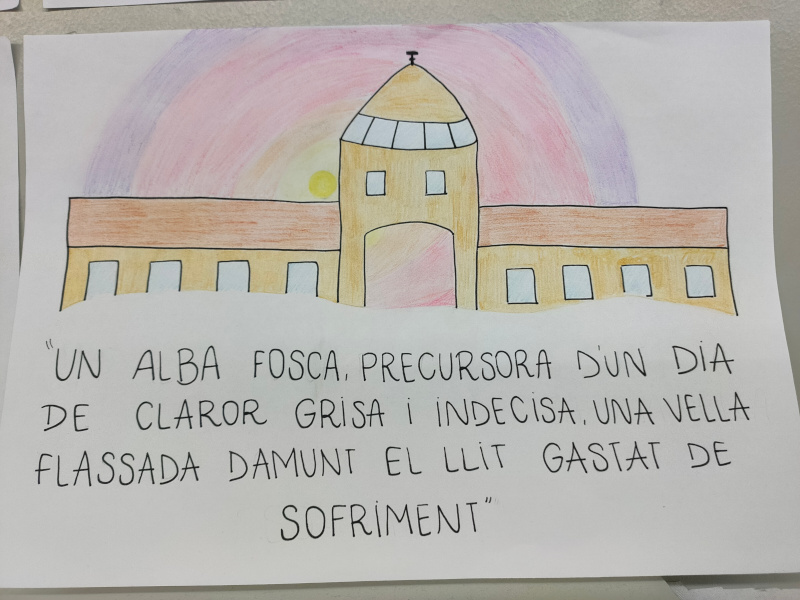 "UN ALBA FOSCA, PRECURSORA D'UN DIA
DE CLAROR GRISA I INDECISA, UNA VELLA
FLASSADA DAMUNT EL LLIT GASTAT DE
SOFRIMENT"